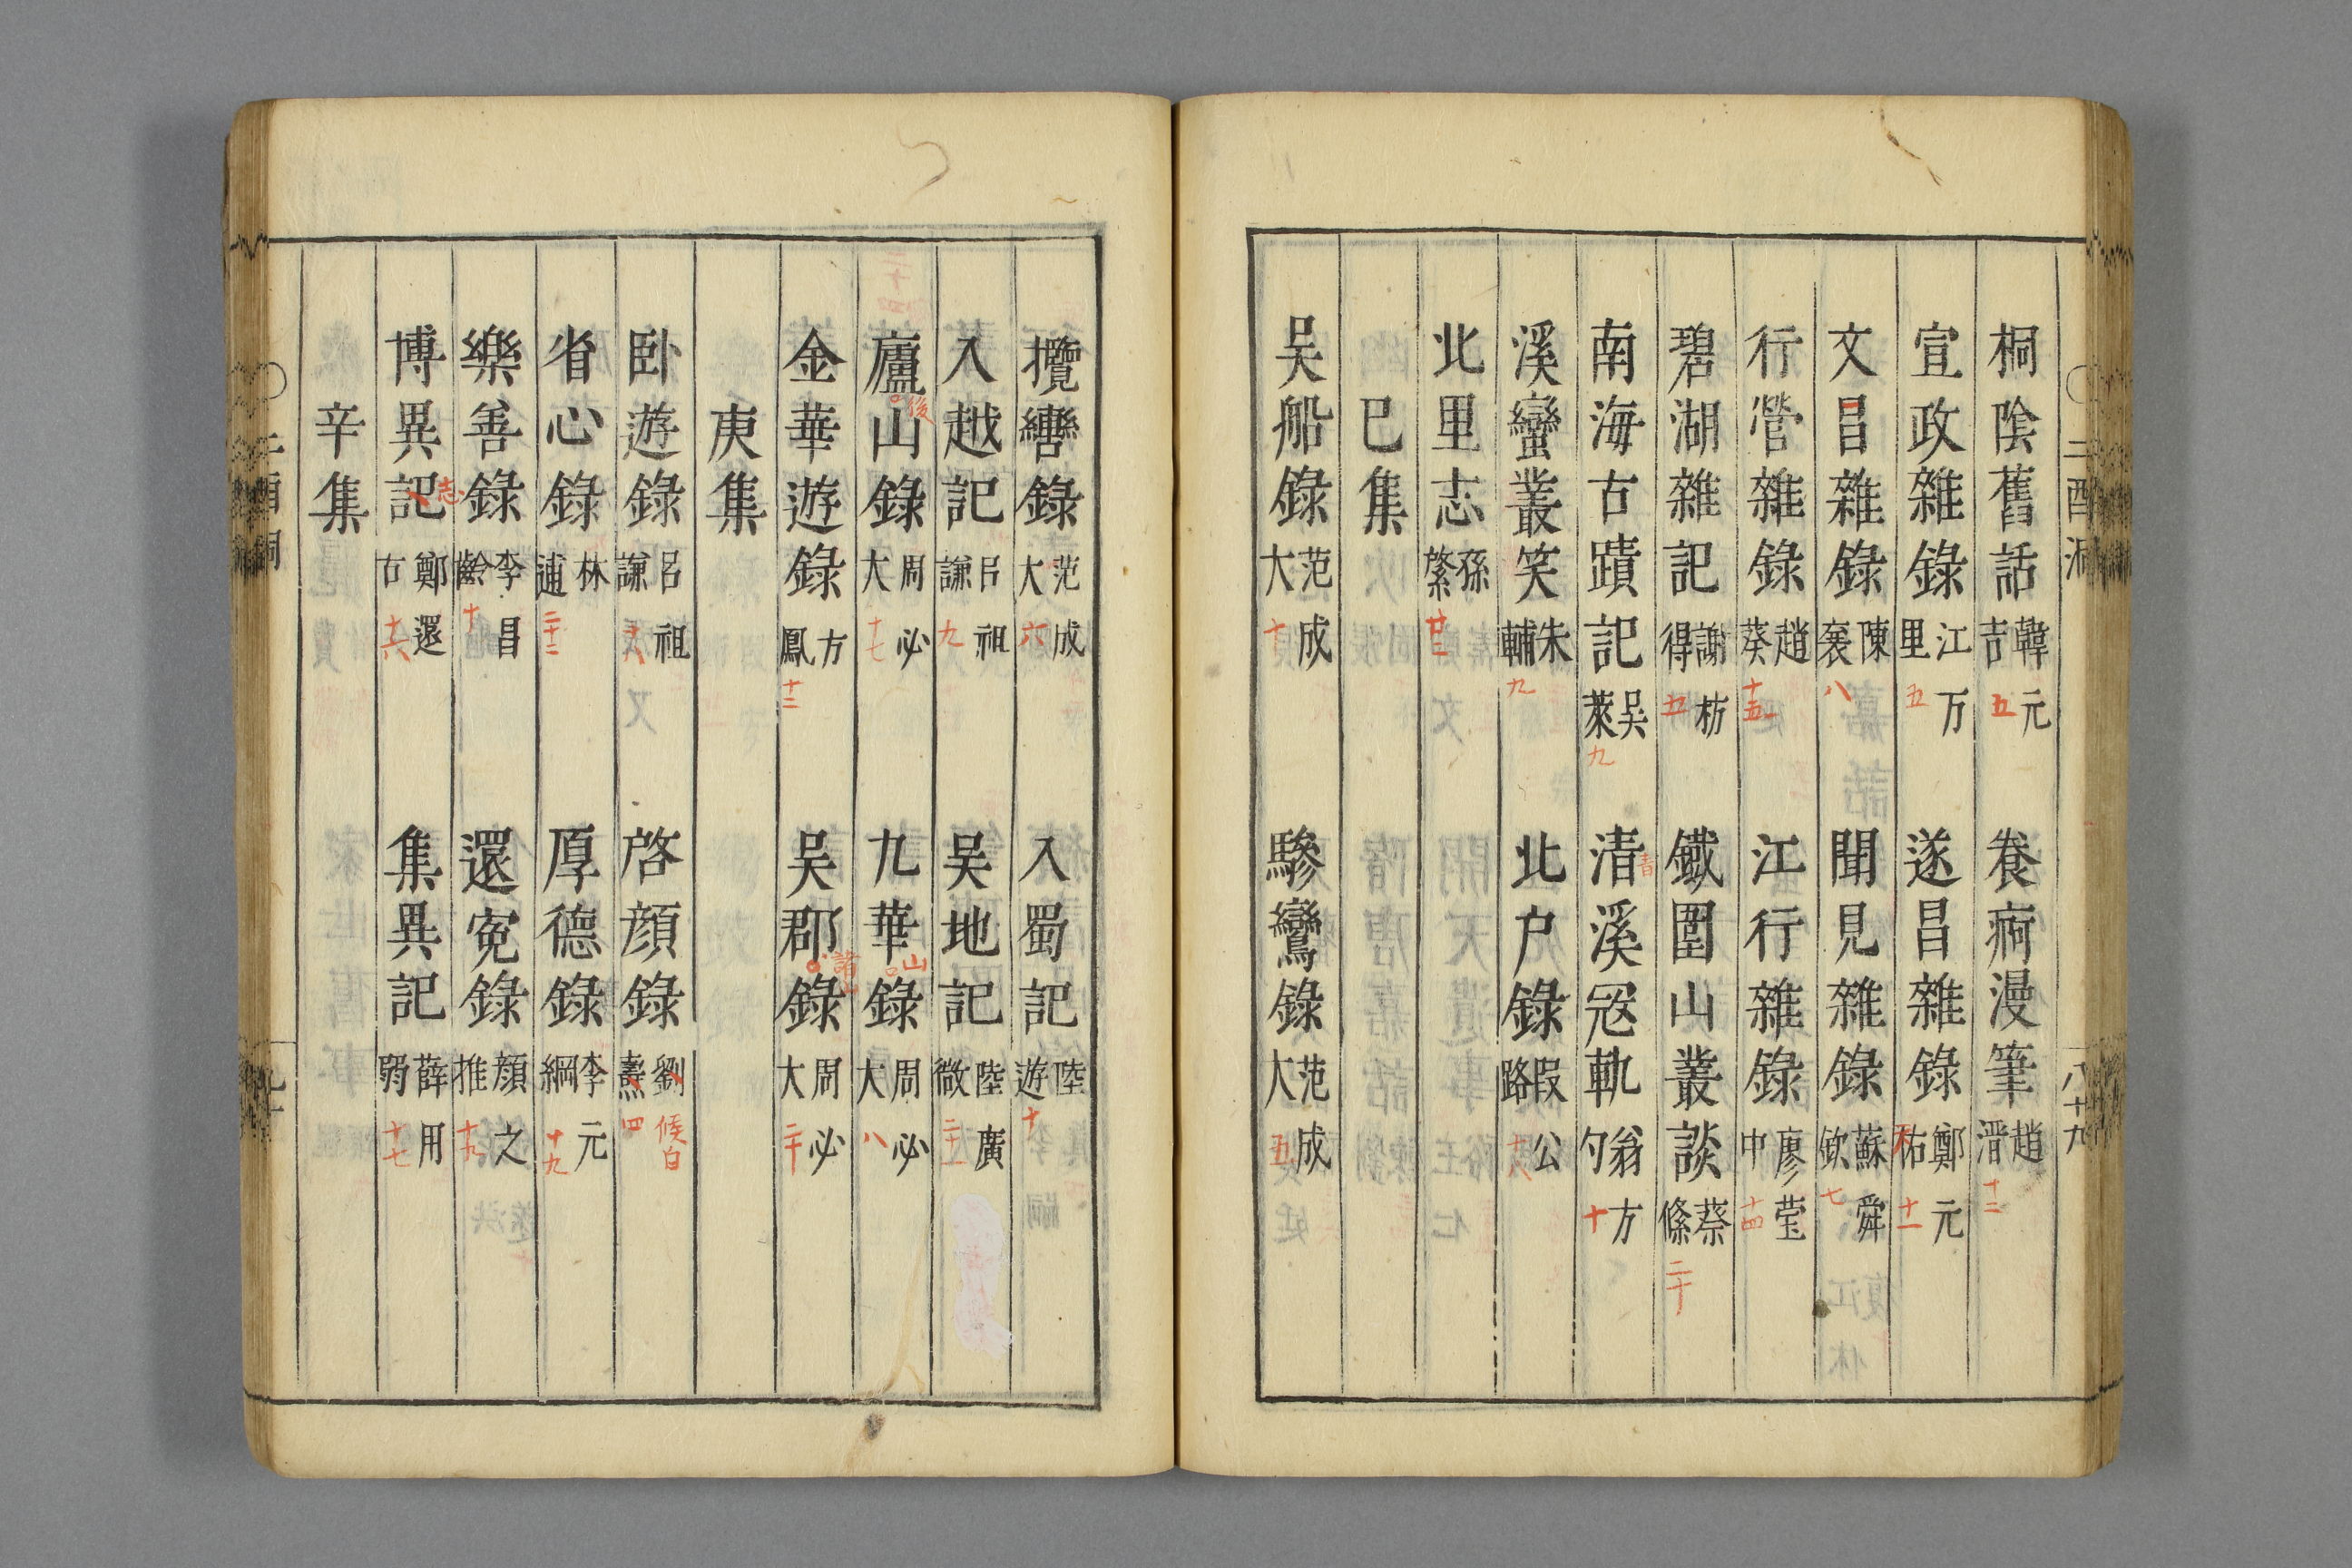 二酉洞
八十九
桐陰舊話韓元吉五 養痾漫筆趙溍十二
宣政雜錄江万里五 遂昌雜錄鄭元祐十一
文昌雜錄陳襄八 聞見雜錄蘇舜欽七
行營雜錄趙葵十五 江行雜錄廖莹中十四
碧湖雜記謝枋得五 鐵圍山叢談蔡絛二十
南海古蹟記吴萊九 清青溪冦軌翁方勺十
溪蠻叢笑朱輔九 北户錄叚公路十八
北里志孫棨廿三
巳集
吴船錄范成大十 驂鸞錄范成大五
攬轡錄范成大六 入蜀記陸遊十
入越記吕祖謙九 吴地記陸廣微二十一
廬後山錄周必大十七 九華山錄周必大八
金華遊錄方鳳十二 吴郡諸山錄周必大二十
庚集
卧遊錄呂祖謙十八 啓顔錄劉燾候白四
省心錄林逋二十三 厚德錄李元綱十九
樂善錄李昌齡十 還寃錄顔之推十九
博異記志鄭還古十六 集異記薛用弱十七
辛集
二酉洞